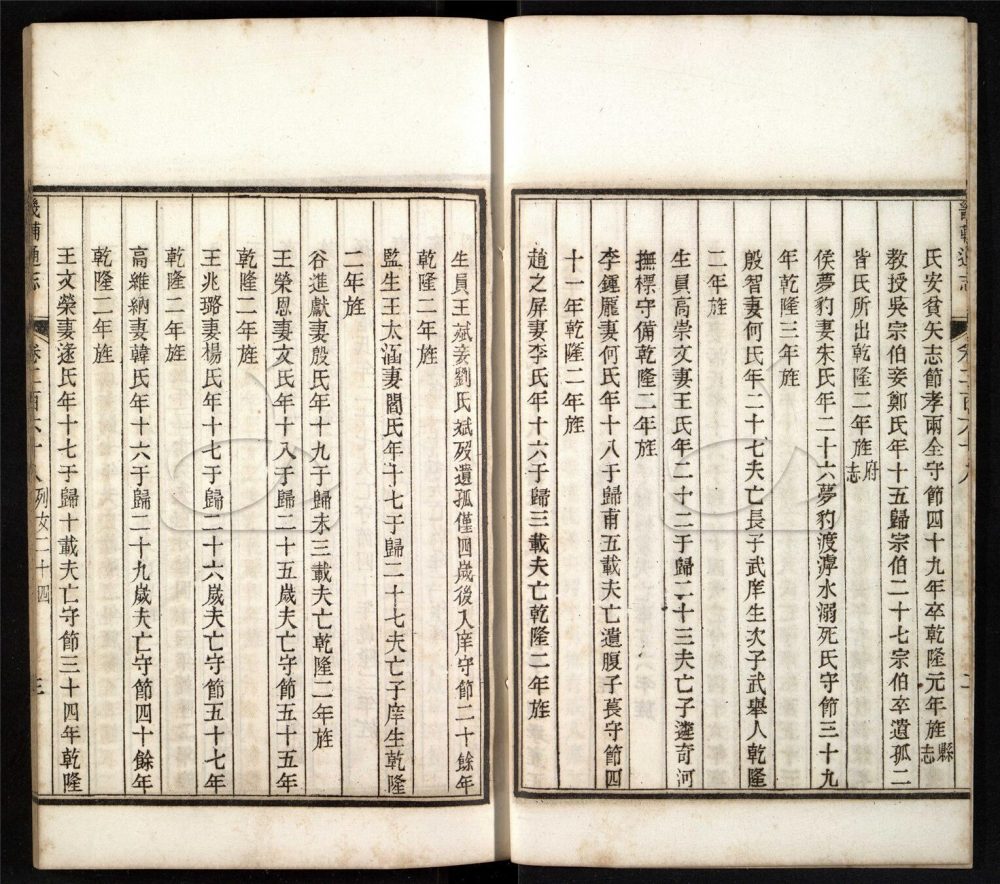 氏安貧矢志節孝兩全守節四十九年卒乾隆元年旌縣志
教授吳宗伯妾鄭氏年十五歸宗伯二十七宗伯卒遺孤二
皆氏所出乾隆二年旌府志
侯夢豹妻朱氏年二十六夢豹渡滹水溺死氏守節三十九
年乾隆三年旌
殷智妻何氏年二十七夫亡長子武庠生次子武舉人乾隆
二年旌
生員高崇文妻王氏年二十二于歸二十三夫亡子遴奇河
撫標守備乾隆二年旌
李鍾龎妻何氏年十八于歸甫五載夫亡遺腹子萇守節四
十一年乾隆二年旌
趙之屏妻李氏年十六于歸三載夫亡乾隆二年旌
生員王斌妾劉氏斌歿遺孤僅四歲後入庠守節二十餘年
乾隆二年旌
監生王太涵妻閻氏年十七于歸二十七夫亡子庠生乾隆
二年旌
谷進獻妻殷氏年十九于歸未三載夫亡乾隆二年旌
王榮恩妻文氏年十八于歸二十五歲夫亡守節五十五年
乾隆二年旌
王兆璐妻楊氏年十七于歸二十六歲夫亡守節五十七年
乾隆二年旌
高維納妻韓氏年十六于歸二十九歲夫亡守節四十餘年
乾隆二年旌
王文榮妻逯氏年十七于歸十載夫亡守節三十四年乾隆
畿輔通志 卷二百六十八 列女二十四 三